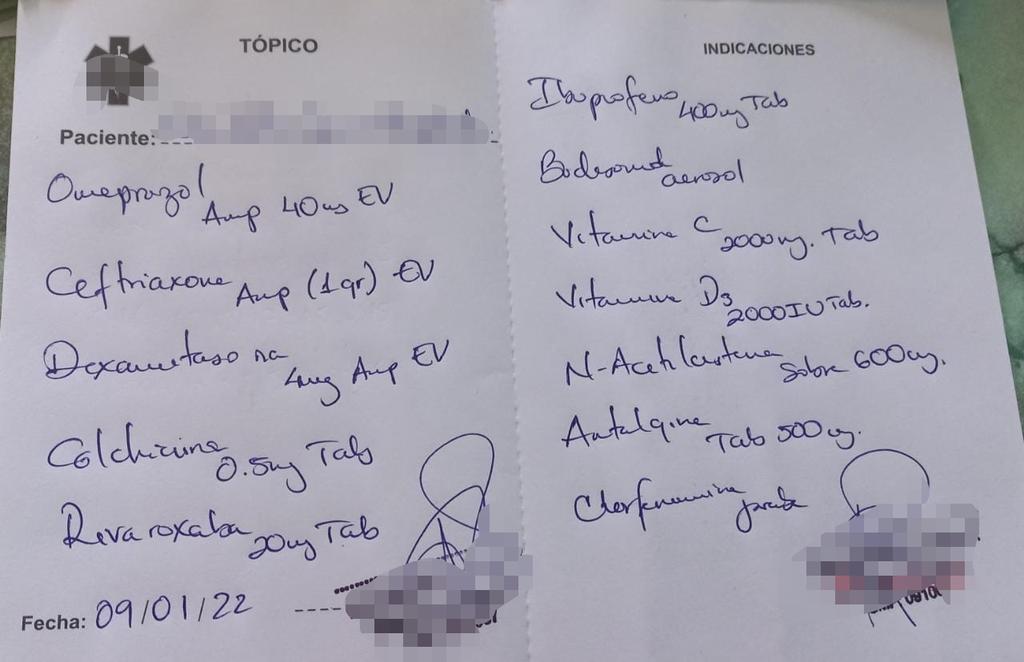 TÓPICO
Paciente:
Omeprazol Amp 40mg EV
Ceftriaxona Amp (1gr) EV
Dexametasona 4mg Amp EV
Colchicina 0.5mg Tab
Rivaroxaba 20mg Tab
Fecha: 09/01/22
INDICACIONES
Ibuprofeno 400mg Tab
Budesonid aerosol
Vitamina C 2000mg. Tab
Vitamina D3 2000IU Tab.
N-Acetilcisteina Sobre 600mg.
Antalgina Tab 500mg.
Clorfenamina jarabe